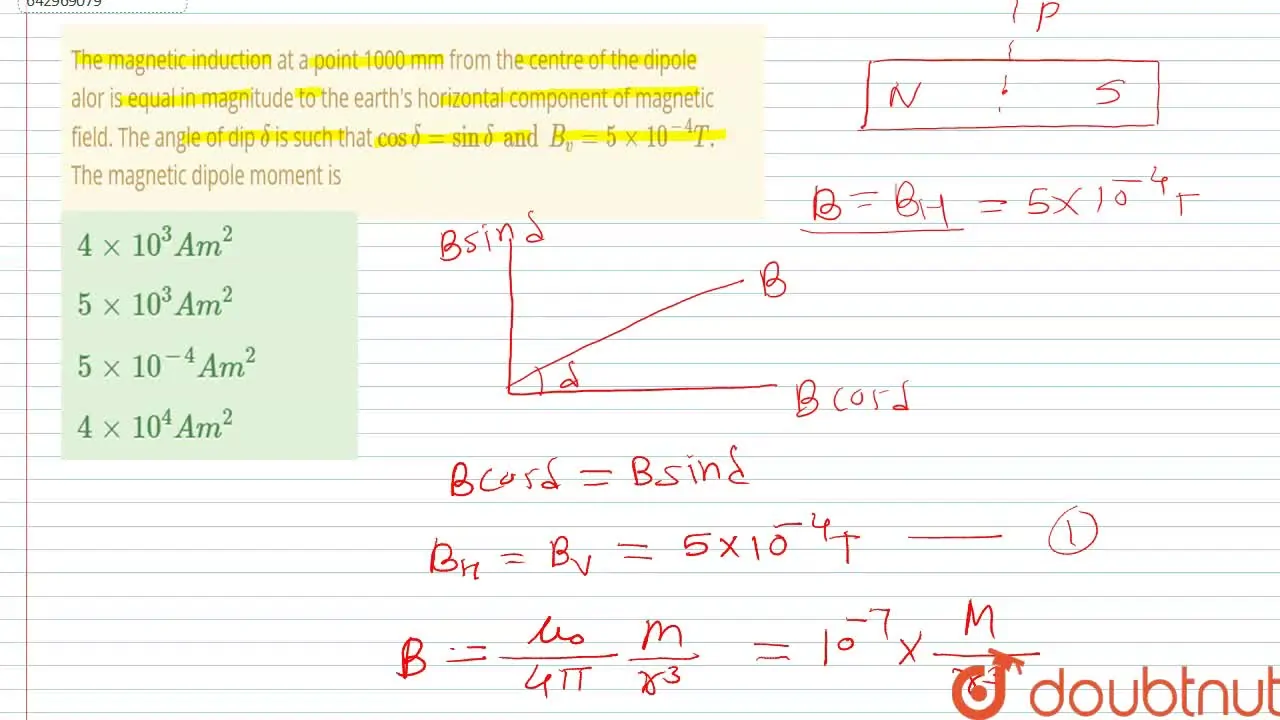 642969079
The magnetic induction at a point 1000 mm from the centre of the dipole
alor is equal in magnitude to the earth's horizontal component of magnetic
field. The angle of dip δ is such that cos δ = sin δ and B_v = 5 × 10^−4 T.
The magnetic dipole moment is
4 × 10^3 Am^2
5 × 10^3 Am^2
5 × 10^−4 Am^2
4 × 10^4 Am^2
P
N S
B = B_H = 5×10^−4 T
B sin δ
B
δ
B cos δ
B cos δ = B sin δ
B_H = B_V = 5×10^−4 T — ①
B = μ₀/4π M/r^3 = 10^−7 × M/r^3
doubtnut